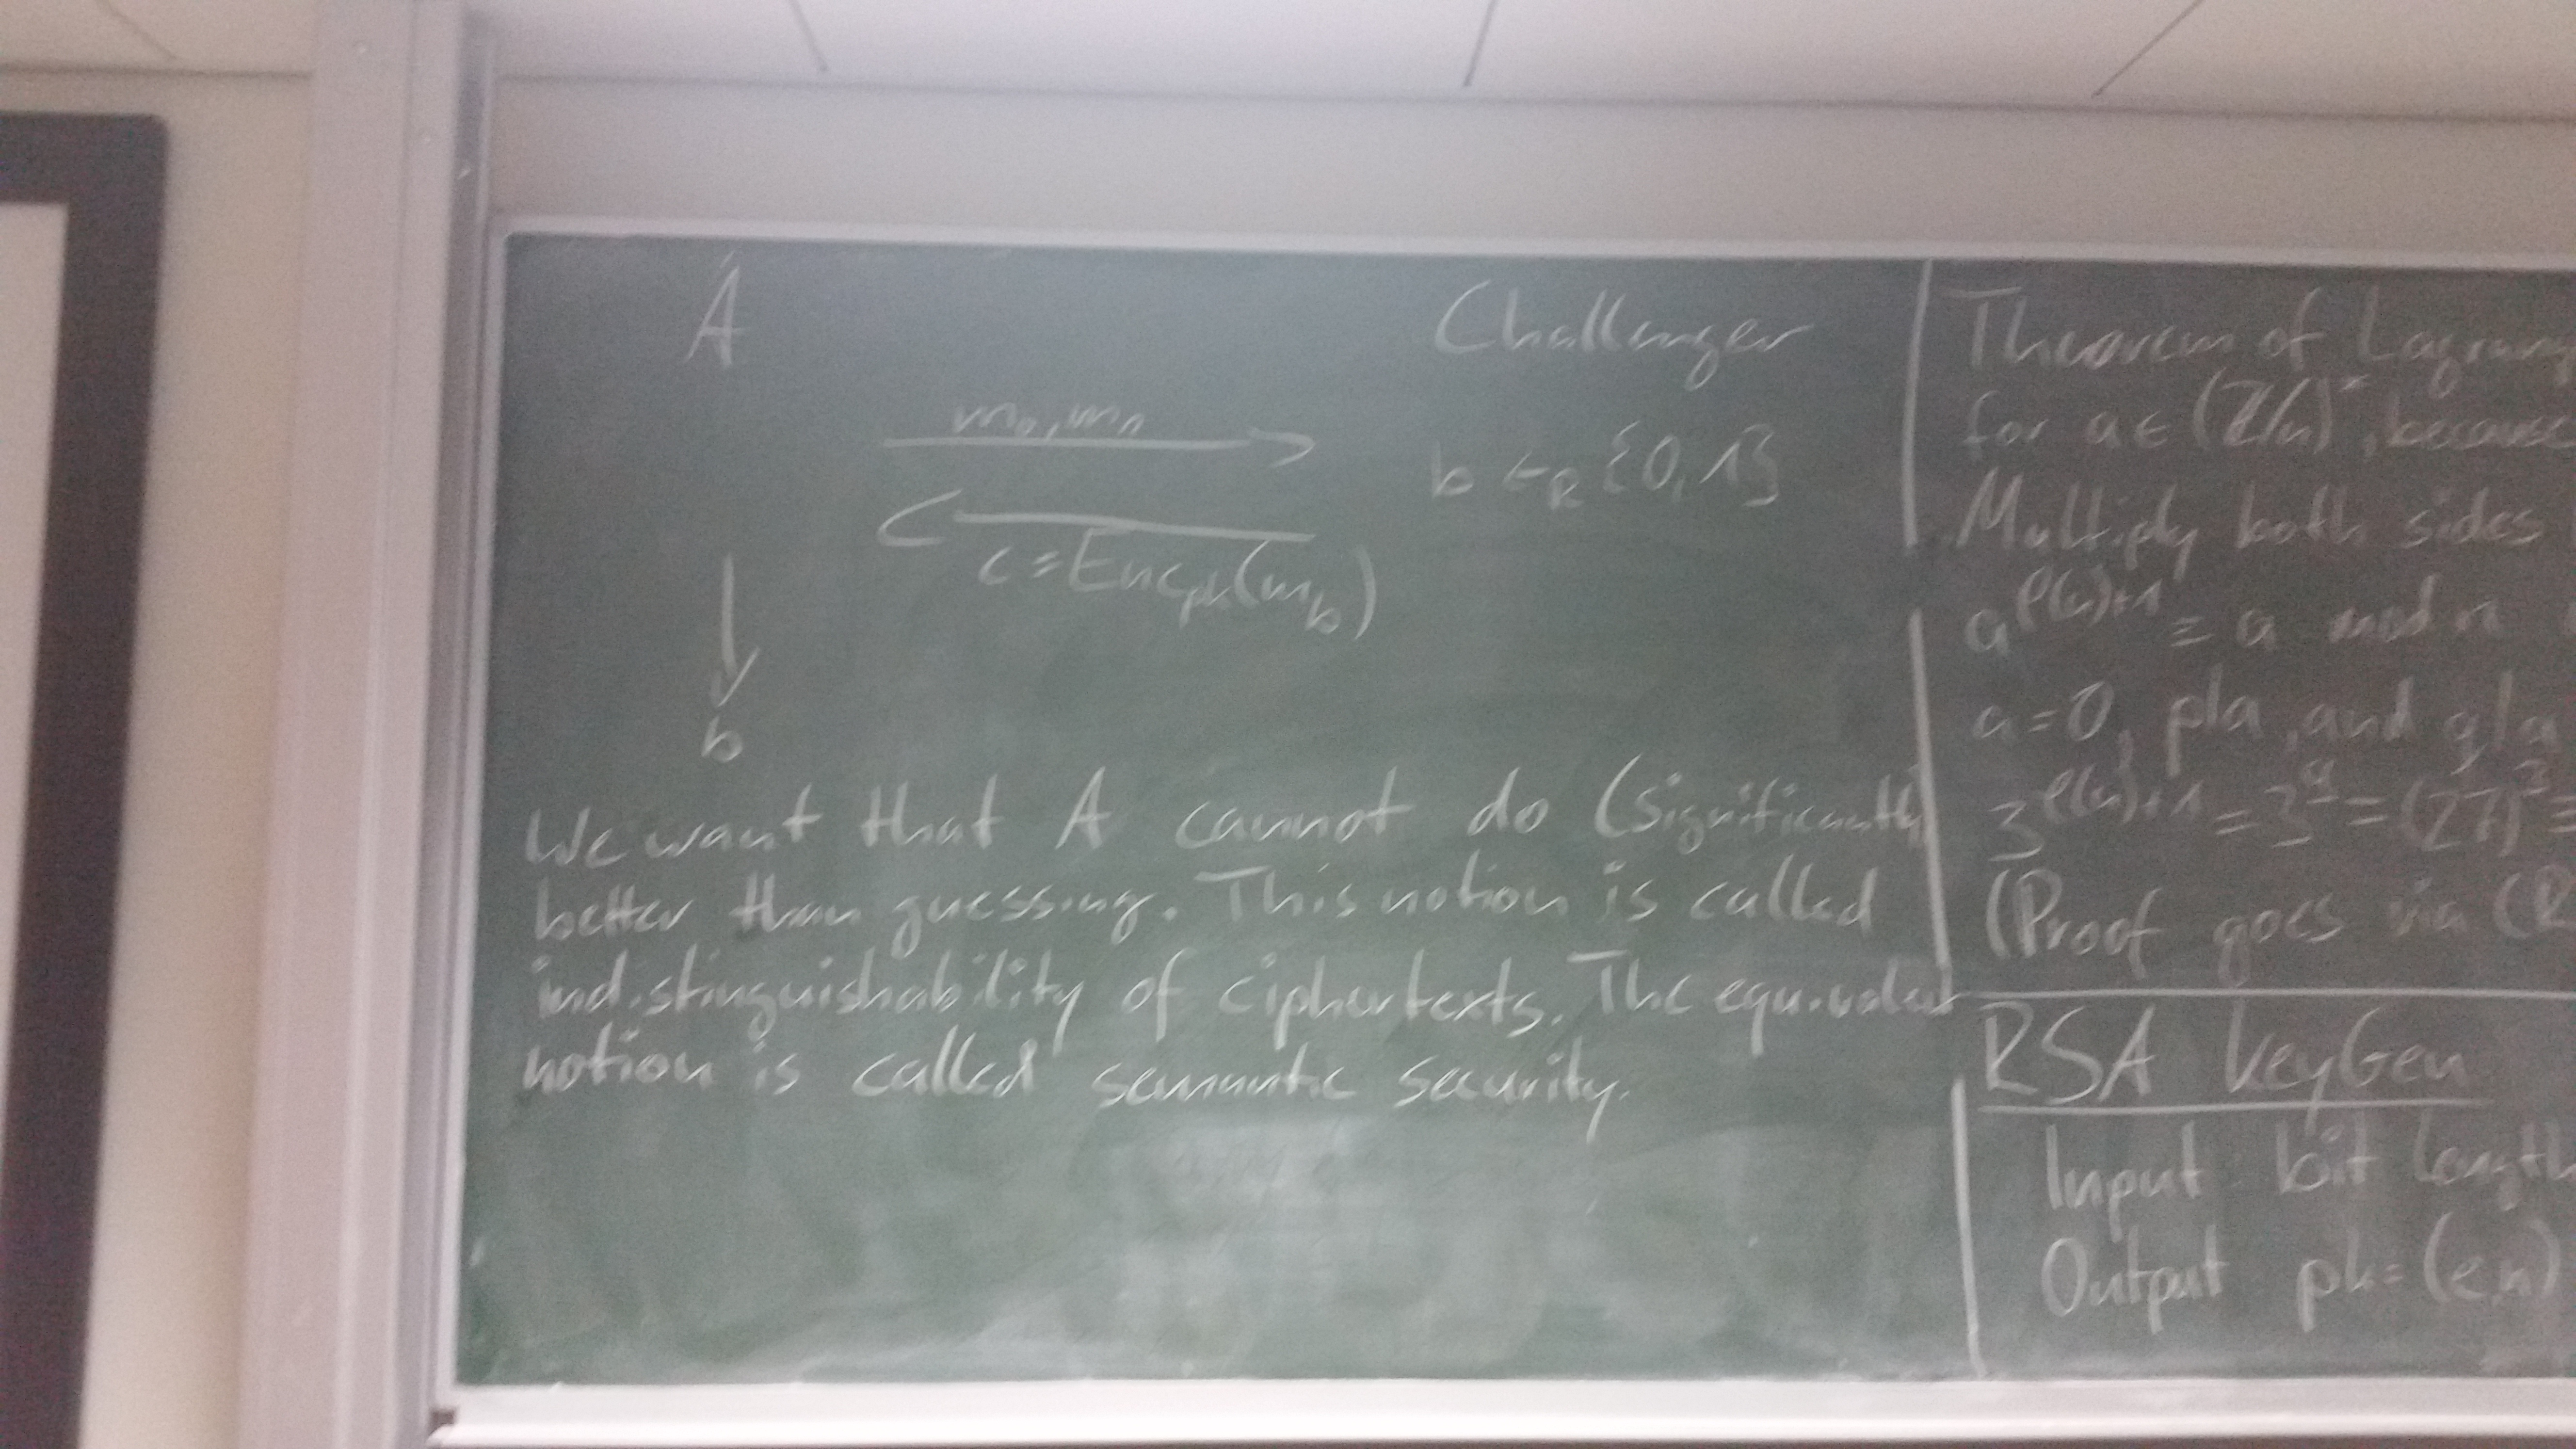 A
Challenger
m₀, m₁
b ←_R {0,1}
c = Enc_pk(m_b)
b
We want that A cannot do (significantly)
better than guessing. This notion is called
indistinguishability of ciphertexts. The equivalent
notion is called semantic security.
Theorem of Lagrang
for a ∈ (Z/n)^×, because
Multiply both sides
a^{φ(n)+1} ≡ a mod n
a=0, p|a, and q|a
3^{φ(n)+1} = 3^ = (27)^3 =
(Proof goes via CR
RSA KeyGen
Input bit length
Output pk=(e,n)